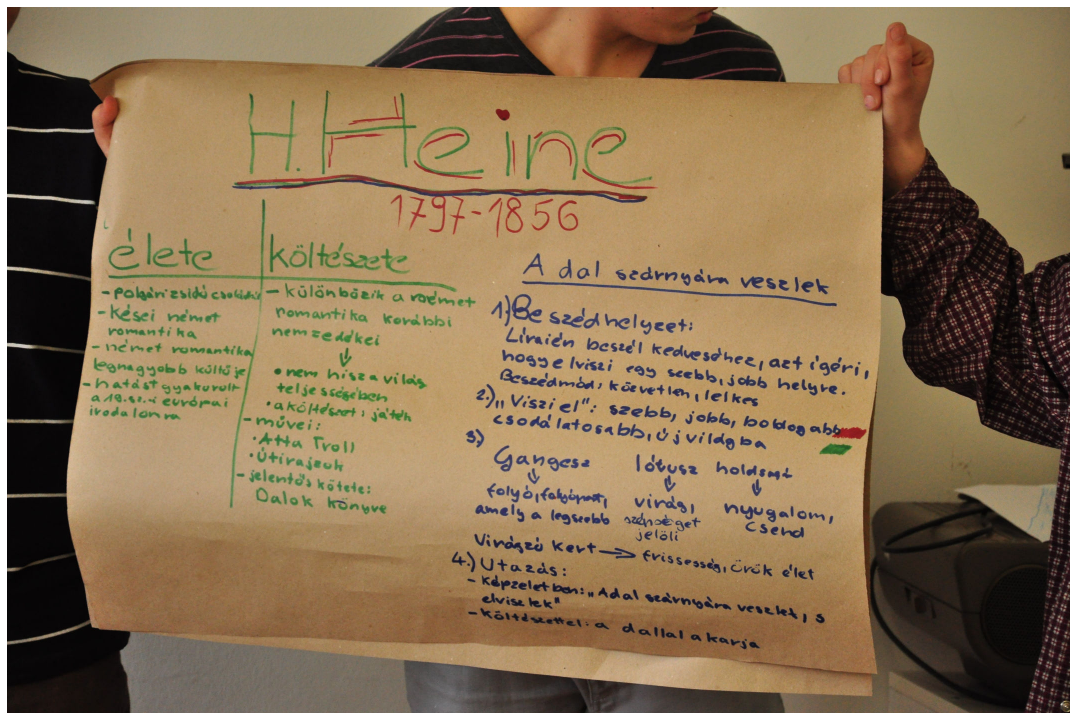 H. Heine
1797-1856
élete
- polgári zsidó család
- Kései német
romantika
- német romantika
legnagyobb költője
- hatást gyakorolt
a 19. sz.-i európai
irodalomra
költészete
- különbözik a német
romantika korábbi
nemzedékei
• nem hisz a világ
teljességében
• a költészet: játék
- művei:
• Atta Troll
• Útirajzok
- jelentős kötete:
Dalok könyve
A dal szárnyára veszlek
1) Beszédhelyzet:
Líraién beszél kedveséhez, azt ígéri,
hogy elviszi egy szebb, jobb helyre.
Beszédmód: közvetlen, lelkes
2.) „Viszi el": szebb, jobb, boldogabb
csodálatosabb, új világba
3.)
Gangesz lótusz holdsmi
folyó, folyópart, virág, nyugalom,
amely a legszebb szépséget csend
jelöli
Virágzó kert → frissesség, örök élet
4.) Utazás:
- képzeletben: „A dal szárnyára veszlek, s
elviszlek"
- költészettel: a dallal akarja